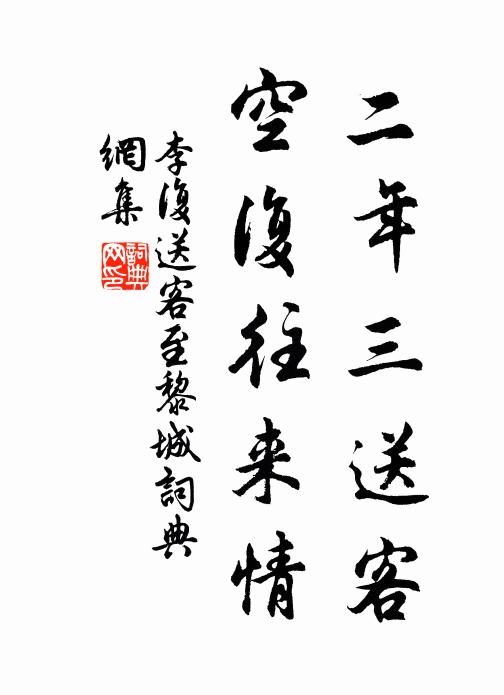 二年三送客
空復往来情
李復送客至黎城詞典
網集
詞典
网印